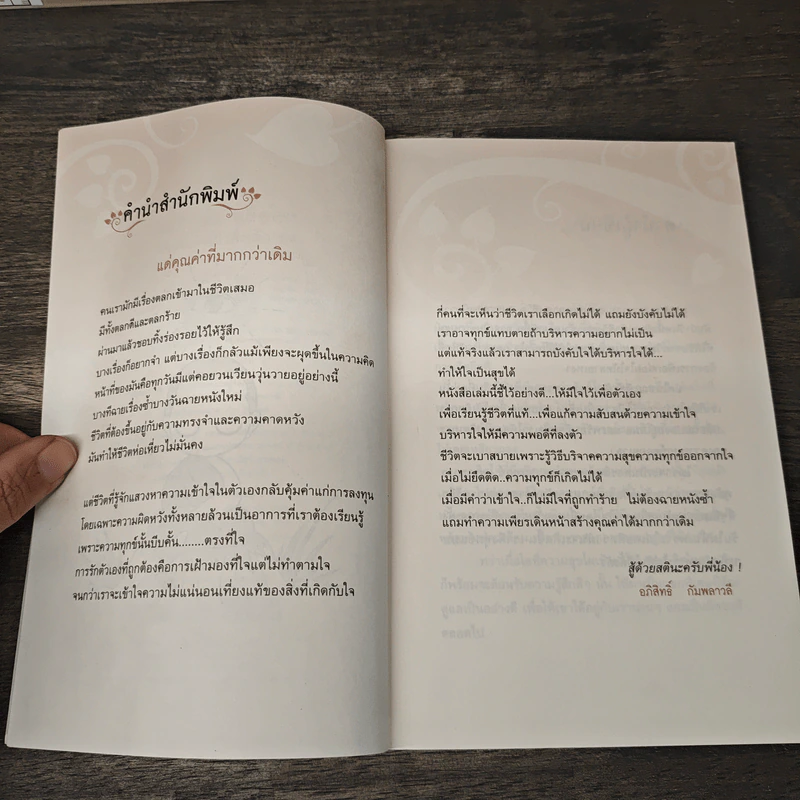 คำนำสำนักพิมพ์
แด่คุณค่าที่มากกว่าเดิม
คนเรามักมีเรื่องตลกเข้ามาในชีวิตเสมอ
มีทั้งตลกดีและตลกร้าย
ผ่านมาแล้วชอบทิ้งร่องรอยไว้ให้รู้สึก
บางเรื่องก็อยากจำ แต่บางเรื่องก็กลัวแม้เพียงจะผุดขึ้นในความคิด
หน้าที่ของมันคือทุกวันมีแต่คอยวนเวียนวุ่นวายอยู่อย่างนี้
บางทีฉายเรื่องซ้ำบางวันฉายหนังใหม่
ชีวิตที่ต้องขึ้นอยู่กับความทรงจำและความคาดหวัง
มันทำให้ชีวิตห่อเหี่ยวไม่มั่นคง
แต่ชีวิตที่รู้จักแสวงหาความเข้าใจในตัวเองกลับคุ้มค่าแก่การลงทุน
โดยเฉพาะความผิดหวังทั้งหลายล้วนเป็นอาการที่เราต้องเรียนรู้
เพราะความทุกข์นั้นบีบคั้น........ตรงที่ใจ
การรักตัวเองที่ถูกต้องคือการเฝ้ามองที่ใจแต่ไม่ทำตามใจ
จนกว่าเราจะเข้าใจความไม่แน่นอนเที่ยงแท้ของสิ่งที่เกิดกับใจ
กี่คนที่จะเห็นว่าชีวิตเราเลือกเกิดไม่ได้ แถมยังบังคับไม่ได้
เราอาจทุกข์แทบตายถ้าบริหารความอยากไม่เป็น
แต่แท้จริงแล้วเราสามารถบังคับใจได้บริหารใจได้...
ทำให้ใจเป็นสุขได้
หนังสือเล่มนี้ชี้ไว้อย่างดี...ให้มีใจไว้เพื่อตัวเอง
เพื่อเรียนรู้ชีวิตที่แท้...เพื่อแก้ความสับสนด้วยความเข้าใจ
บริหารใจให้มีความพอดีที่ลงตัว
ชีวิตจะเบาสบายเพราะรู้วิธีบริจาคความสุขความทุกข์ออกจากใจ
เมื่อไม่ยึดติด..ความทุกข์ก็เกิดไม่ได้
เมื่อมีคำว่าเข้าใจ..ก็ไม่มีใจที่ถูกทำร้าย ไม่ต้องฉายหนังซ้ำ
แถมทำความเพียรเดินหน้าสร้างคุณค่าได้มากกว่าเดิม
สู้ด้วยสตินะครับพี่น้อง !
อภิสิทธิ์ กัมพลาวลี